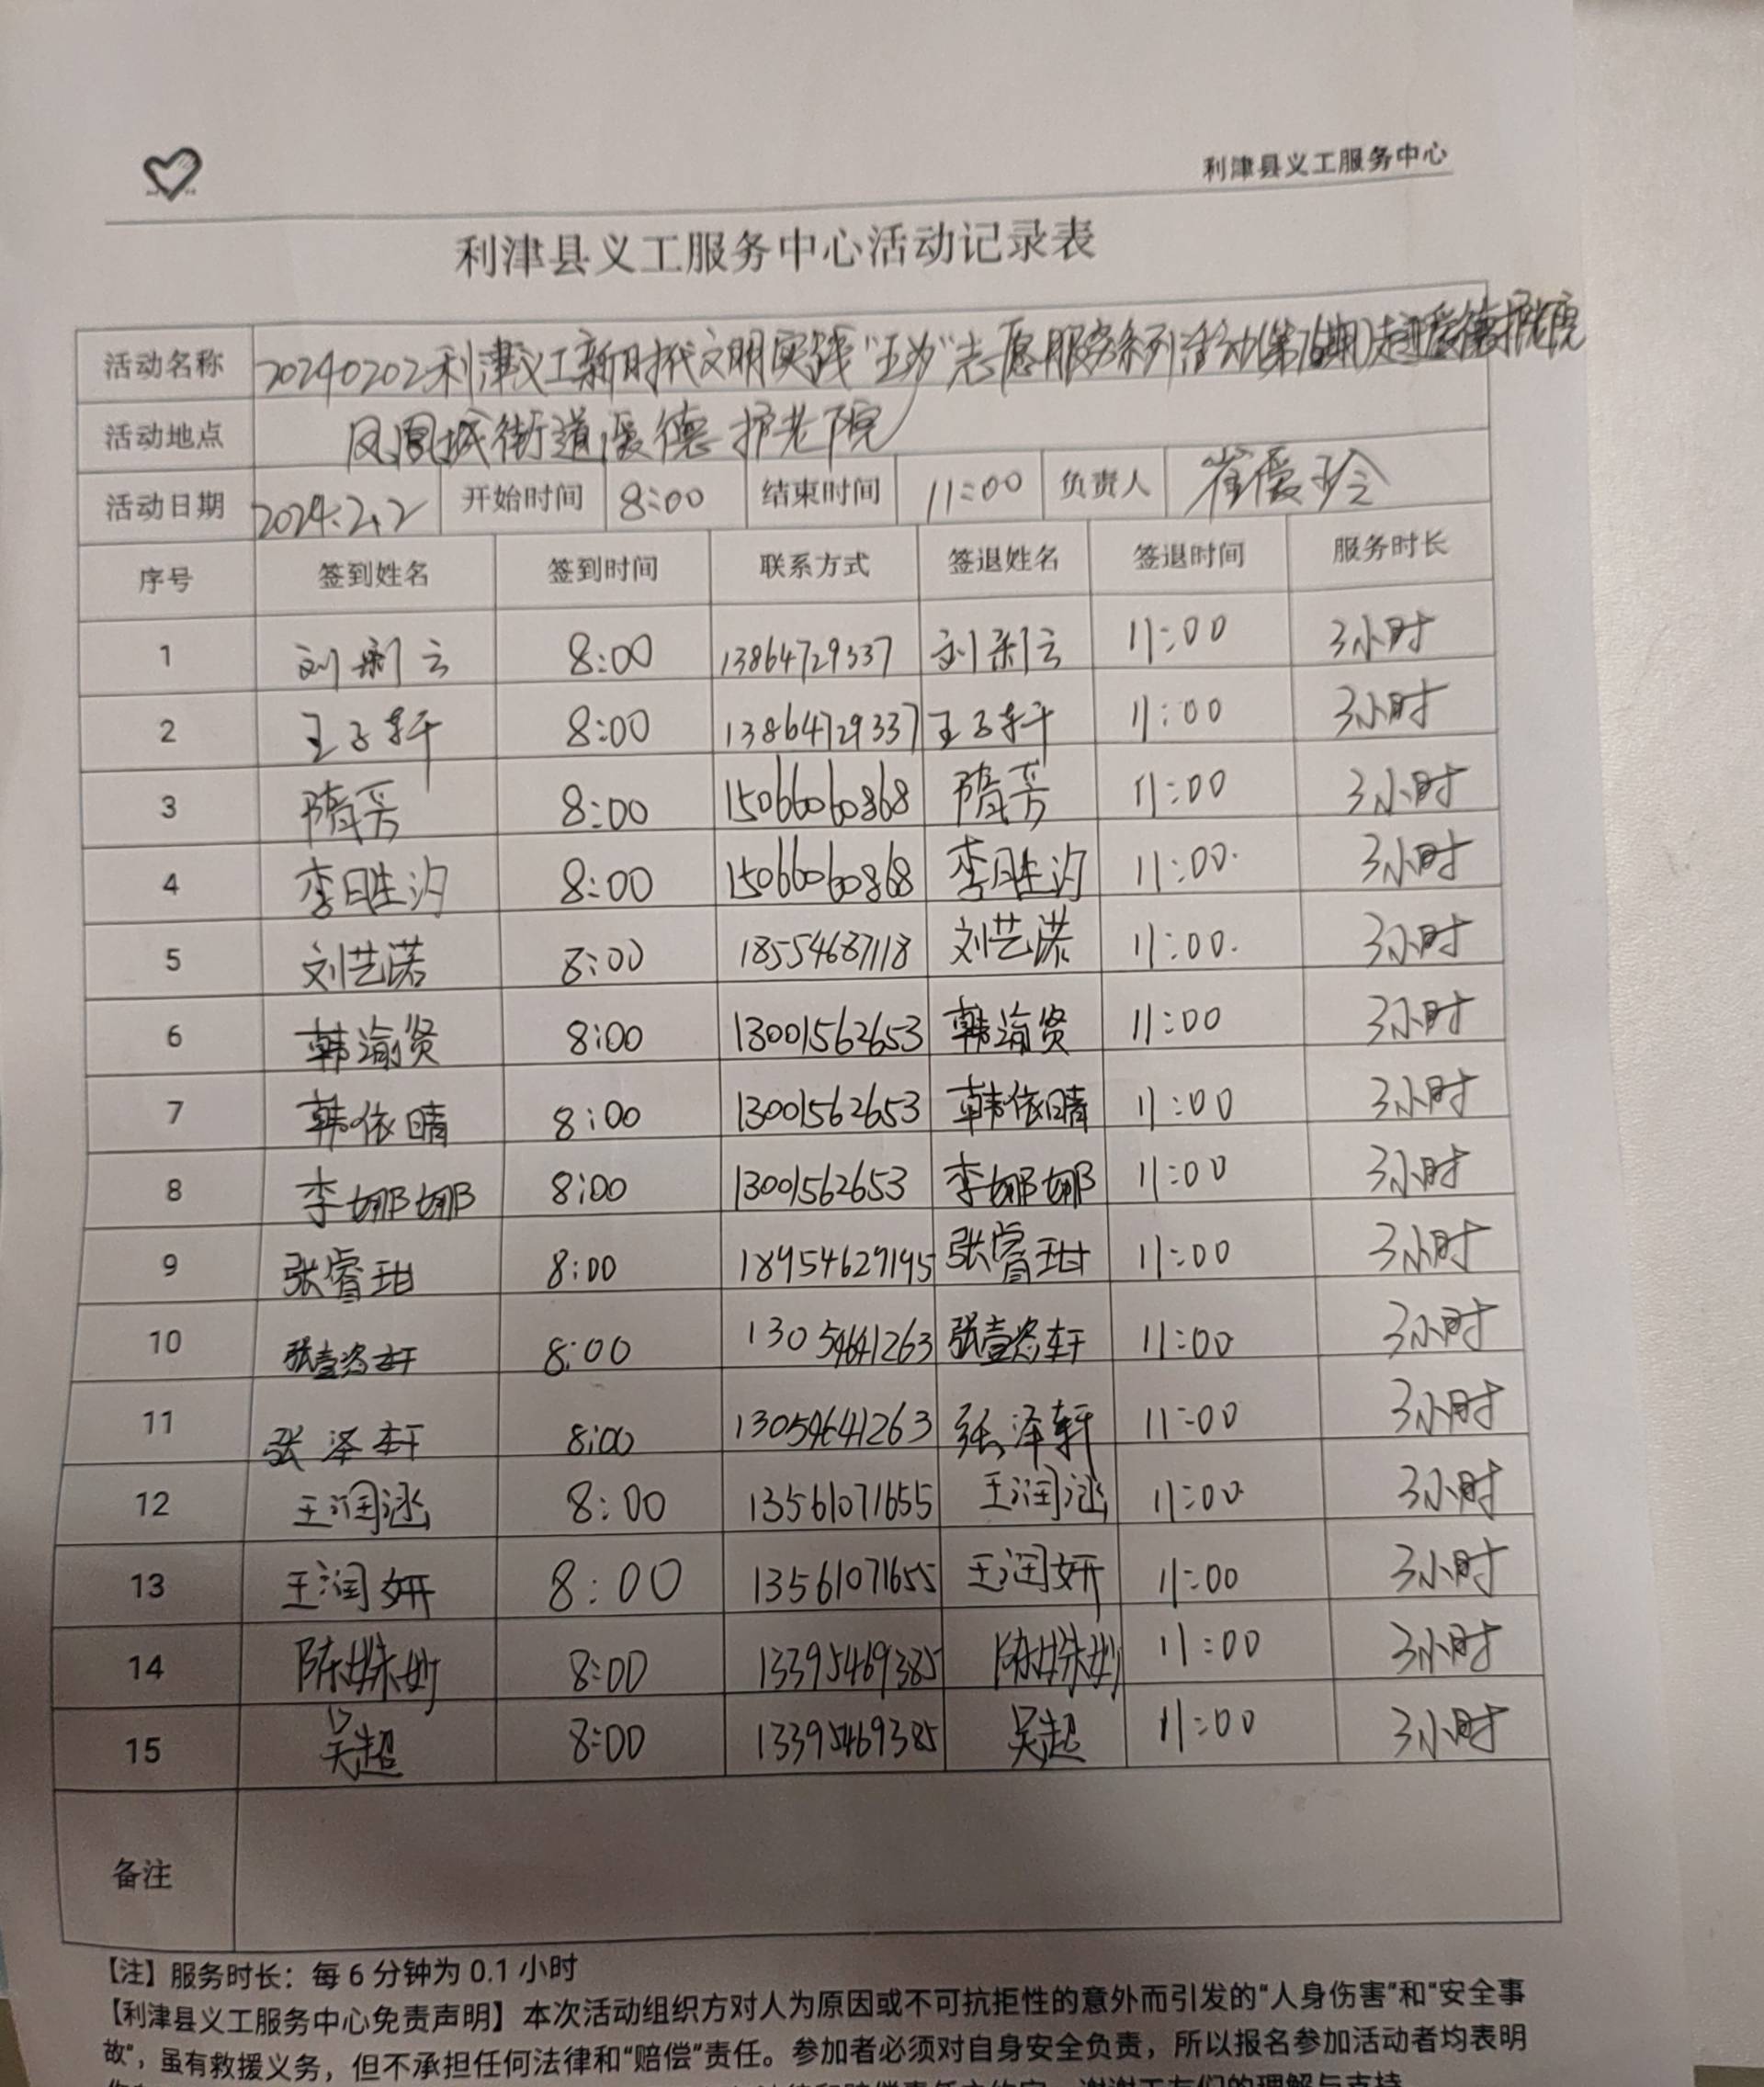 利津县义工服务中心
利津县义工服务中心活动记录表
活动名称 20240202利津义工新时代文明实践"五为"志愿服务系列活动(第76期)走进爱德护老院
活动地点 凤凰城街道爱德护老院
活动日期 2024.2.2 开始时间 8:00 结束时间 11:00 负责人 崔爱玲
序号 签到姓名 签到时间 联系方式 签退姓名 签退时间 服务时长
1 刘 云 8:00 13864729337 刘 云 11:00 3小时
2 王子轩 8:00 13864729337 王子轩 11:00 3小时
3 隋芳 8:00 15066060868 隋芳 11:00 3小时
4 李 汐 8:00 15066060868 李 汐 11:00 3小时
5 刘艺诺 8:00 18554687118 刘艺诺 11:00 3小时
6 韩渝贤 8:00 13001562653 韩渝贤 11:00 3小时
7 韩依晴 8:00 13001562653 韩依晴 11:00 3小时
8 李娜娜 8:00 13001562653 李娜娜 11:00 3小时
9 张睿玵 8:00 18954629195 张睿玵 11:00 3小时
10 张壹 轩 8:00 13054641263 张壹 轩 11:00 3小时
11 张泽轩 8:00 13054641263 张泽轩 11:00 3小时
12 王润涵 8:00 13561071655 王润涵 11:00 3小时
13 王润妍 8:00 13561071655 王润妍 11:00 3小时
14 陈姝妙 8:00 13395469385 陈姝妙 11:00 3小时
15 吴超 8:00 13395469385 吴超 11:00 3小时
备注
【注】服务时长：每 6 分钟为 0.1 小时
【利津县义工服务中心免责声明】本次活动组织方对人为原因或不可抗拒性的意外而引发的“人身伤害”和“安全事
故”，虽有救援义务，但不承担任何法律和“赔偿”责任。参加者必须对自身安全负责，所以报名参加活动者均表明